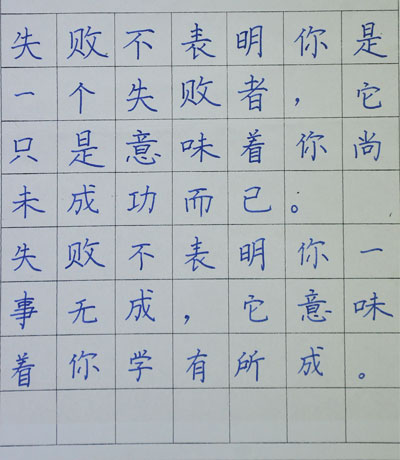 失败不表明你是
一个失败者，它
只是意味着你尚
未成功而已。
失败不表明你一
事无成，它意味
着你学有所成。